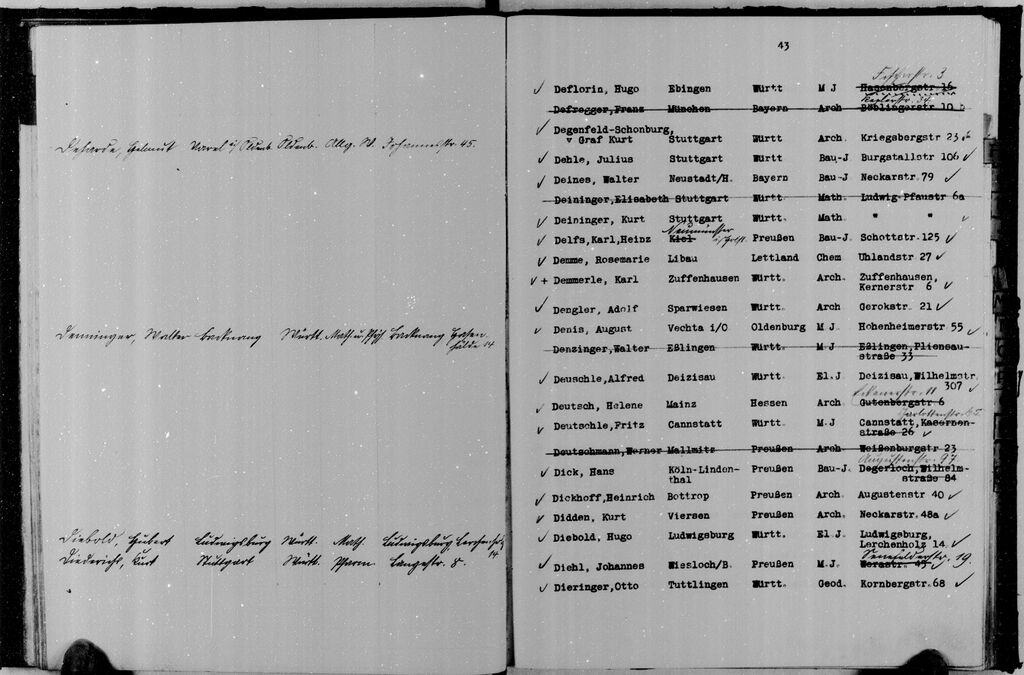 Deharde, Helmut Varel i/ Oldenb. Oldenb. Allg. W. Johannesstr. 45.
Denninger, Walter Backnang Württ. Math u. Phys Backnang
Diebold, Hubert Ludwigsburg Württ. Math. Ludwigsburg,
14
Diederich, Kurt Stuttgart Württ. Pharm. Langestr. 8.
43
Deflorin, Hugo Ebingen Württ M J Hauenbergstr 16
Defregger, Franz München Bayern Arch Böblingerstr 10
Degenfeld-Schonburg,
v Graf Kurt Stuttgart Württ Arch. Kriegsbergstr 23
Dehle, Julius Stuttgart Württ Bau-J. Burgstallstr 106
Deines, Walter Neustadt/H. Bayern Bau-J Neckarstr. 79
Deininger, Elisabeth Stuttgart Württ. Math. Ludwig-Pfaustr 6a
Deininger, Kurt Stuttgart Württ. Math " "
Neumünster
Delfs, Karl, Heinz Kiel i/Holst. Preußen Bau-J. Schottstr. 125
Demme, Rosemarie Libau Lettland Chem Uhlandstr 27
+ Demmerle, Karl Zuffenhausen Württ. Arch. Zuffenhausen,
Kernerstr 6
Dengler, Adolf Sparwiesen Württ. Arch Gerokstr. 21
Denis, August Vechta i/O Oldenburg M J. Hohenheimerstr 55
Denzinger, Walter Eßlingen Württ. M J Eßlingen, Pliensau-
straße 33
Deuschle, Alfred Deizisau Württ. El. J. Deizisau, Wilhelmstr.
307
Deutsch, Helene Mainz Hessen Arch Gutenbergstr 6
Charlottenstr.
Deutschle, Fritz Cannstatt Württ. M. J Cannstatt, Kasernen-
straße 26
Deutschmann, Werner Mallmitz Preußen Arch. Weißenburgstr 23
Augustenstr. 97
Dick, Hans Köln-Linden- Preußen Bau-J. Degerloch, Wilhelm-
thal straße 84
Dickhoff, Heinrich Bottrop Preußen Arch. Augustenstr 40
Didden, Kurt Viersen Preußen Arch. Neckarstr. 48a
Diebold, Hugo Ludwigsburg Württ. El J. Ludwigsburg,
Lerchenholz 14
Senefelderstr. 19.
Diehl, Johannes Wiesloch/B. Preußen M. J. Werastr. 45
Dieringer, Otto Tuttlingen Württ. Geod. Kornbergstr. 68